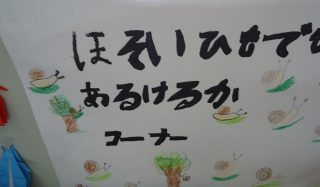 ほそいひもで
あるけるか
コーナー